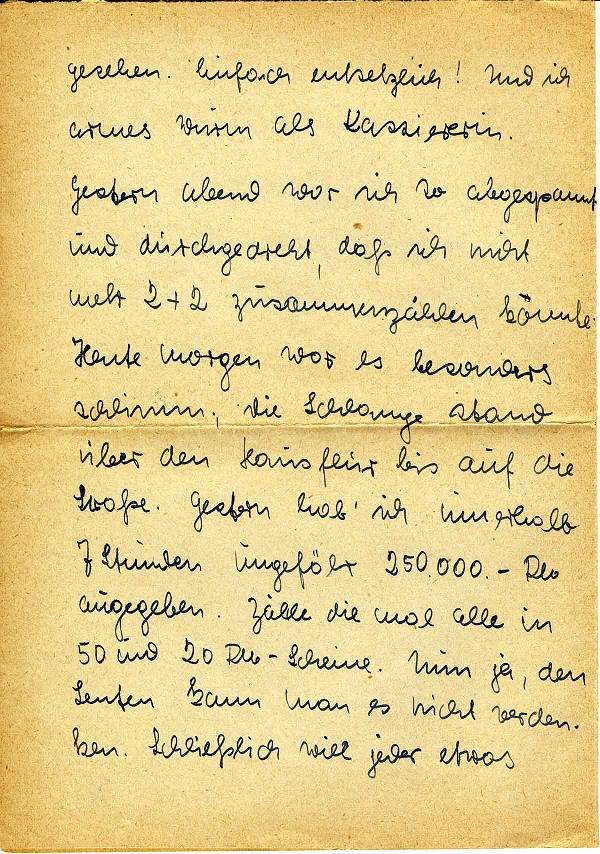 gesehen. Einfach entsetzlich! Und ich
armes Wurm als Kassiererin.
Gestern abend war ich so abgespannt
und durchgedreht, daß ich nicht
mehr 2+2 zusammenzählen könnte.
Heute morgen war es besonders
schlimm, die Schlange stand
über den Hausflur bis auf die
Straße. Gestern hab' ich innerhalb
7 Stunden ungefähr 250.000.- DM
ausgegeben. Zähle die mal alle in
50 und 20 DM-Scheine. Nun ja, den
Leuten kann man es nicht verden-
ken. Schließlich will jeder etwas